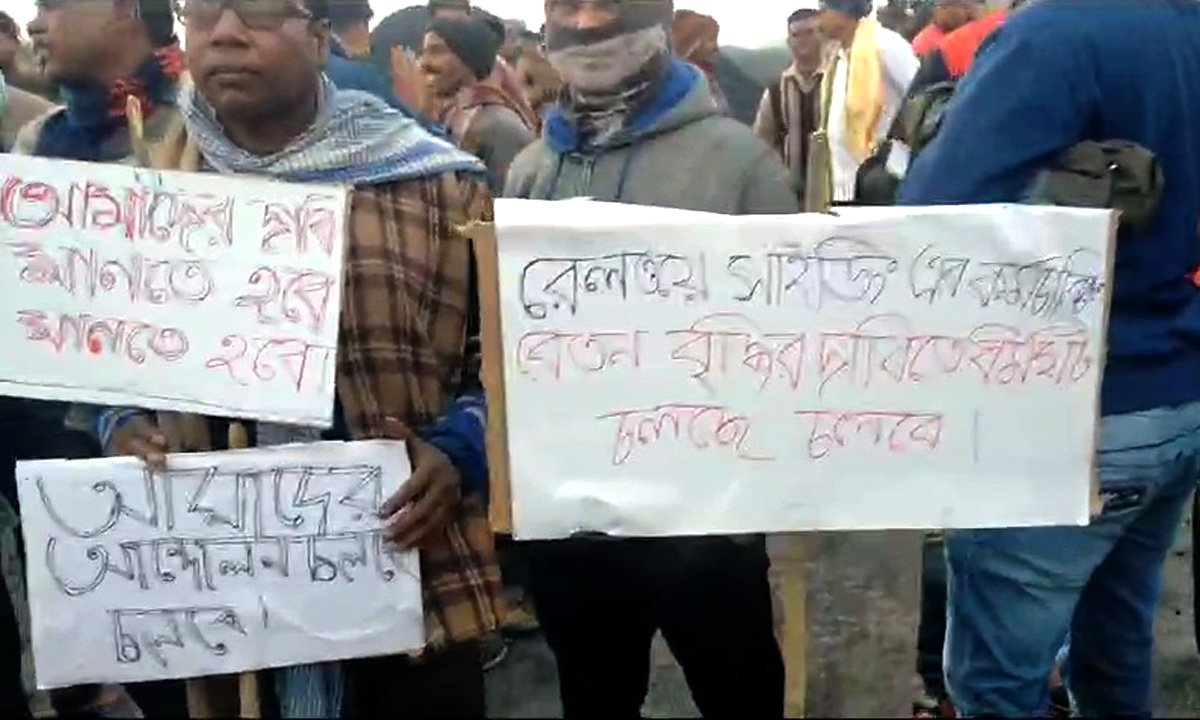 আমাদের দাবি
মানতে হবে
মানতে হবে।
আমাদের
আন্দোলন চলছে
চলবে।
রেলওয়ে সাইডিং এর
বেতন বৃদ্ধির দাবিতে ধর্মঘট
চলছে চলবে।